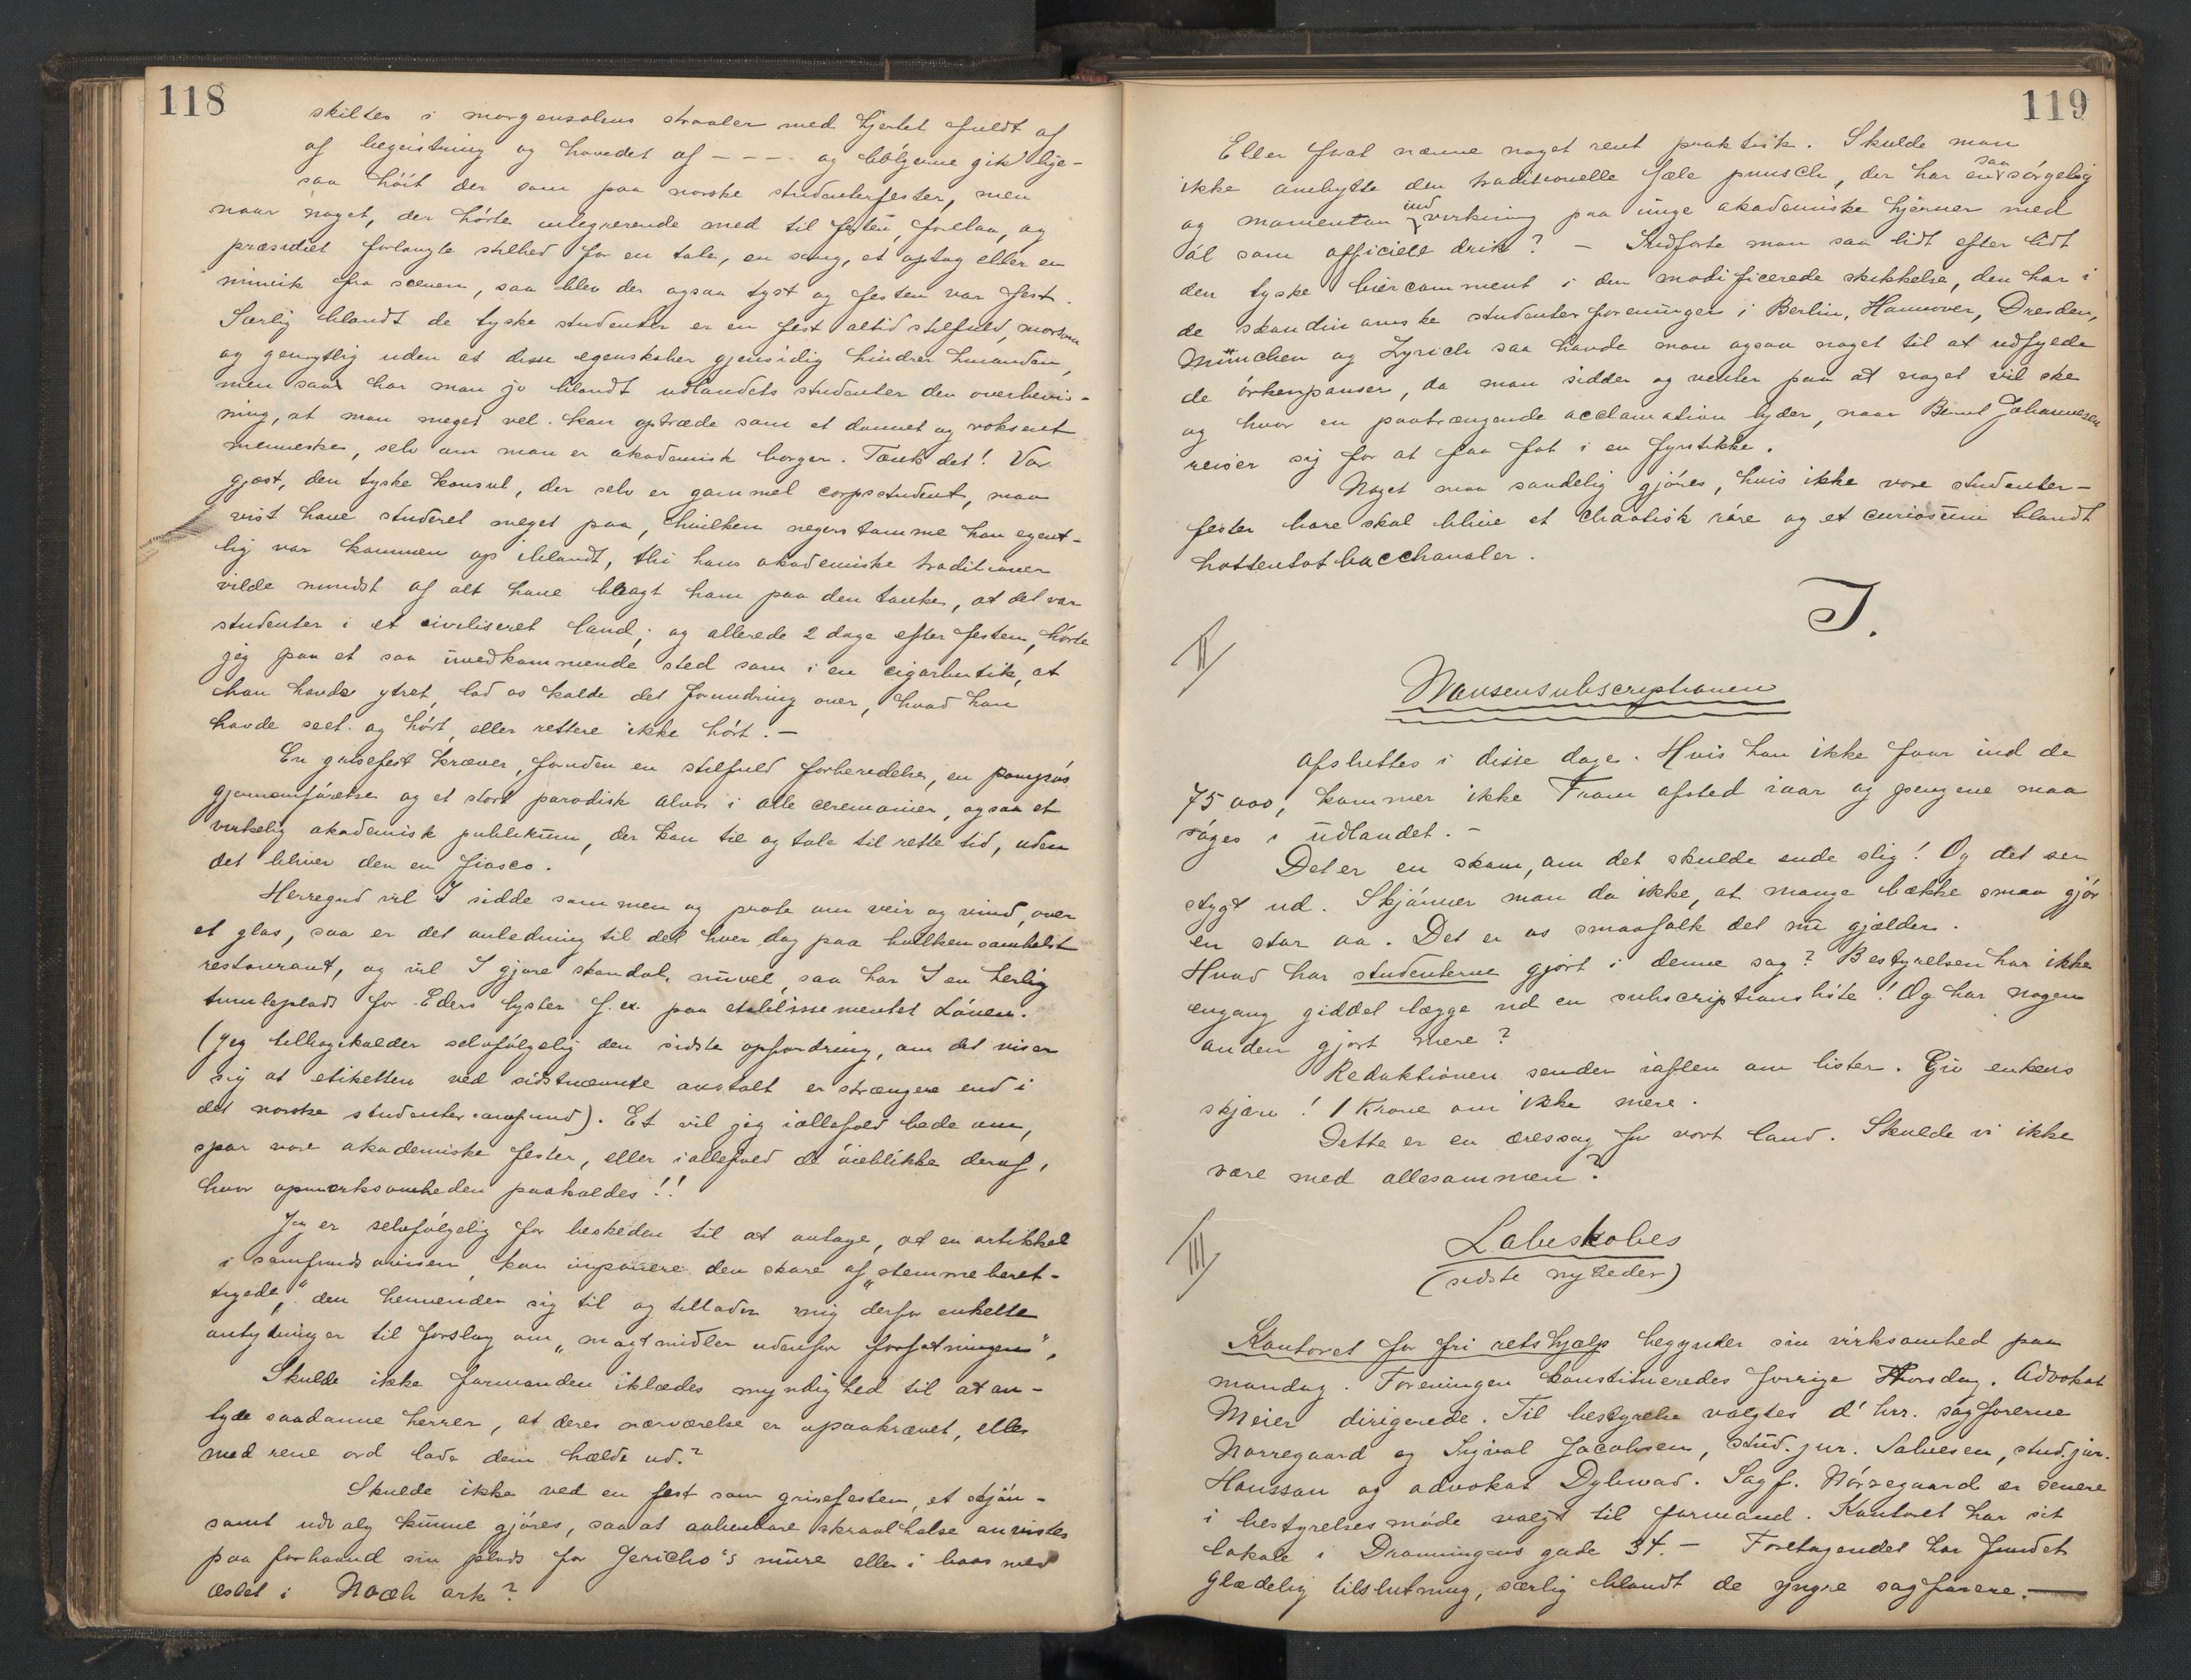 118
skiltes i morgensolens straaler med hjertet fuldt af
af begeistring og hovedet af - - - - og bölgerne gik lige-
saa höit der som paa norske studenterfester, men
naar noget, der hörte integrerende med til festen, forelaa, og
præsidiet forlangte stilhed for en tale, en sang, et optog eller en
mimik fra scenen, saa blev der ogsaa tyst og festen var fest.
Særlig blandt de tyske studenter er en fest altid stilfuld, morsom
og gemytlig uden at disse egenskaber gjensidig hindrer hinanden,
men saa har man jo blandt udlandets studenter den overbevis-
ning, at man meget vel kan optræde som et dannet og voksent
menneske, selv om man er akademisk borger. Tænk det! Vor
gjæst, den tyske konsul, der selv er gammel corpsstudent, maa
vist have studeret meget paa, hvilken negerstamme han egent-
lig var kommen op iblandt, thi hans akademiske traditioner
vilde mindst af alt have bragt ham paa den tanke, at det var
studenter i et civiliseret land; og allerede 2 dage efter festen, hörte
jeg paa et saa uvedkommende sted som i en cigarbutik, at
han havde ytret, lad os kalde det forundring over, hvad han
havde seet og hört, eller rettere ikke hört. —
En grisefest kræver, foruden en stilfuld forberedelse, en pompös
gjennemförelse og et stort parodisk alvor i alle ceremonier, ogsaa et
virkelig akademisk publikum, der kan tie og tale til rette tid, uden
det bliver den en fiasco.
Herregud vil I sidde sammen og prate om veir og vind, over
et glas, saa er det anledning til det hver dag paa hvilkensomhelst
restaurant, og vil I gjøre skandal, nuvel, saa har I en herlig
tumleplads for Eders lyster f. ex. paa etablissementet Löven.
(Jeg tilbagekalder selvfölgelig den sidste opfordring, om det viser
sig at etiketten ved sidstnævnte anstalt er strængere end i
det norske studentersamfund). Et vil jeg iallefald bede om,
spar vore akademiske fester, eller iallefald de öieblikke deraf,
hvor opmærksomheden paakaldes!!
Jeg er selvfölgelig for beskeden til at antage, at en artikkel
i samfundsavisen kan imponere den skare af „stemmeberet-
tigede", den henvender sig til og tillader mig derfor enkelte
antydninger til forslag om „magtmidler udenfor forfatningen",
Skulde ikke formanden iklædes myndighed til at an-
tyde saadanne herrer, at deres nærværelse er upaakrævet, eller
med rene ord lade dem hælde ud?
Skulde ikke ved en fest som grisefesten, et skjön-
somt udvalg kunne gjöres, saa at aabenbare skraalhalse anvistes
paa forhaand sin plads for Jericho's mure eller i baas med
æslet i Noæh ark?
119
Eller forat nævne noget rent praktisk. Skulde man
ikke ombytte den traditionelle fæle punsch, der har en saa sörgelig
og momentan indvirkning paa unge akademiske hjerner med
öl som officiell drik? — Indforte man saa lidt efter lidt
den tyske biercomment i den modificerede skikkelse, den har i
de skandinaviske studenterforeninger i Berlin, Hannover, Dresden,
München og Zyrich saa havde man ogsaa noget til at udfylde
de örkenpauser, da man sidder og venter paa at noget vil ske
og hvor en paatrængende acclamation lyder, naar Bernt Johannesen
reiser sig for at faa fat i en fyrstikke.
Noget maa sandelig gjöres, hvis ikke vore studenter-
fester bare skal blive et chaotisk röre og et curiosum blandt
hottentotbacchanaler.
J.
II
Nansensubscriptionen
afsluttes i disse dage. Hvis han ikke faar ind de
75000, kommer ikke Fram afsted iaar og pengene maa
söges i udlandet. —
Det er en skam, om det skulde ende slig! Og det ser
stygt ud. Skjönner man da ikke, at mange bække smaa gjör
en stor aa. Det er os smaafolk det nu gjælder.
Hvad har studenterne gjort i denne sag? Bestyrelsen har ikke
engang giddet lægge ud en subscriptionsliste! Og har nogen
anden gjort mere?
Redaktionen sender iaften om lister. Giv enkens
skjærv! 1 Krone om ikke mere.
Dette er en æressag for vort land. Skulde vi ikke
være med allesammen?
III
Labeskobes
(sidste nyheder)
Kontoret for fri retshjælp begynder sin virksomhed paa
mandag. Foreningen konstitueredes forrige Thorsdag. Advokat
Meier dirigerede. Til bestyrelse valgtes d'hrr. sagförerne
Norregaard og Sigval Jacobsen, stud. jur. Salvesen, stud. jur.
Hansson og advokat Dybwad. Sagf. Nörregaard er senere
i bestyrelsesmöde valgt til formand. Kontoret har sit
lokale i Dronningens gade 34. — Foretagendet har fundet
glædelig tilslutning, særlig blandt de yngre sagförere. —